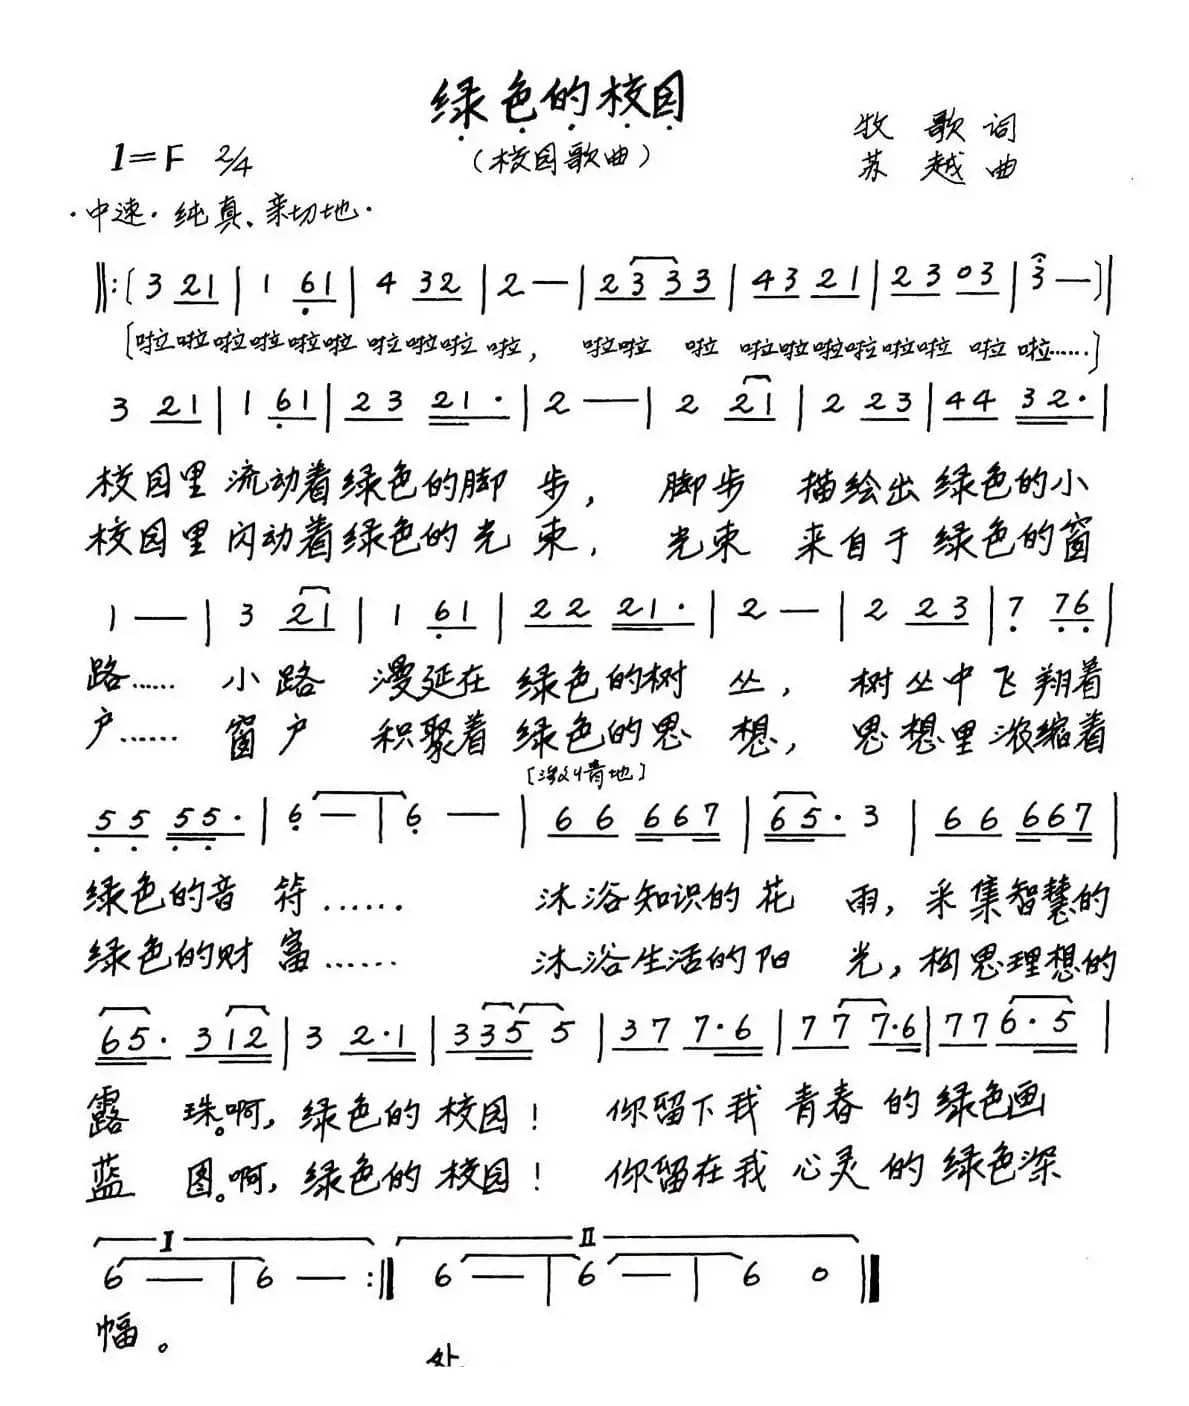 绿色的校园
(校园歌曲)
牧歌词
苏越曲
1=F 2/4
·中速·纯真、亲切地·
‖:(3 21|1 61|4 32|2—|23 33|43 21|23 03|3—)|
[啦啦啦啦啦啦 啦啦啦 啦, 啦啦 啦 啦啦啦啦啦啦 啦 啦……]
3 21|1 61|23 21·|2—|2 21|2 23|44 32·|
校园里流动着绿色的脚步, 脚步 描绘出绿色的小
校园里闪动着绿色的光束, 光束 来自于绿色的窗
1—|3 21|1 61|22 21·|2—|2 23|7 76|
路…… 小路 漫延在 绿色的树丛, 树丛中飞翔着
户…… 窗户 积聚着 绿色的思想, 思想里浓缩着
[激情地]
55 55·|6—|6—|66 667|65·3|66 667|
绿色的音符…… 沐浴知识的花雨, 采集智慧的
绿色的财富…… 沐浴生活的阳光, 构思理想的
65·312|3 2·1|335 5|377·6|77 7·6|77 6·5|
露珠。啊, 绿色的校园! 你留下我青春的绿色画
蓝图。啊, 绿色的校园! 你留在我心灵的绿色深
I II
6—|6—:‖6—|6—|6 0‖
幅。
处